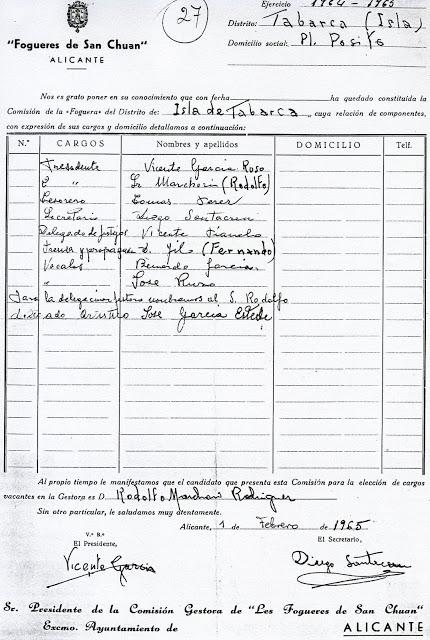 27
Ejercicio 1964 - 1965
Distrito: Tabarca (Isla)
Domicilio social: Pl.
"Fogueres de San Chuan"
ALICANTE
Nos es grato poner en su conocimiento que con fecha ha quedado constituída la
Comisión de la «Foguera» del Distrito de: Isla de Tabarca, cuya relación de componentes,
con expresión de sus cargos y domicilio detallamos a continuación:
N.º CARGOS Nombres y apellidos DOMICILIO Telf.
Presidente Vicente García Ruso
" Sr Marchori (Rodolfo)
Tesorero Tomas
Secretario Diego Santacruz
Delegado de festejos Vicente
Prensa y propaganda (Fernando)
Vocales Bernardo García
" Jose Ruso
Para la delegacion nombramos al S. Rodolfo
Artistico Jose García
Al propio tiempo le manifestamos que el candidato que presenta esta Comisión para la elección de cargos
vacantes en la Gestora es D. Rodolfo Rodriguez
Sin otro particular, le saludamos muy atentamente.
Alicante, 1 de Febrero de 1965
V.º B.º
El Presidente, El Secretario,
Vicente García Diego Santacruz
Sr. Presidente de la Comisión Gestora de "Les Fogueres de San Chuan"
Excmo. Ayuntamiento de ALICANTE